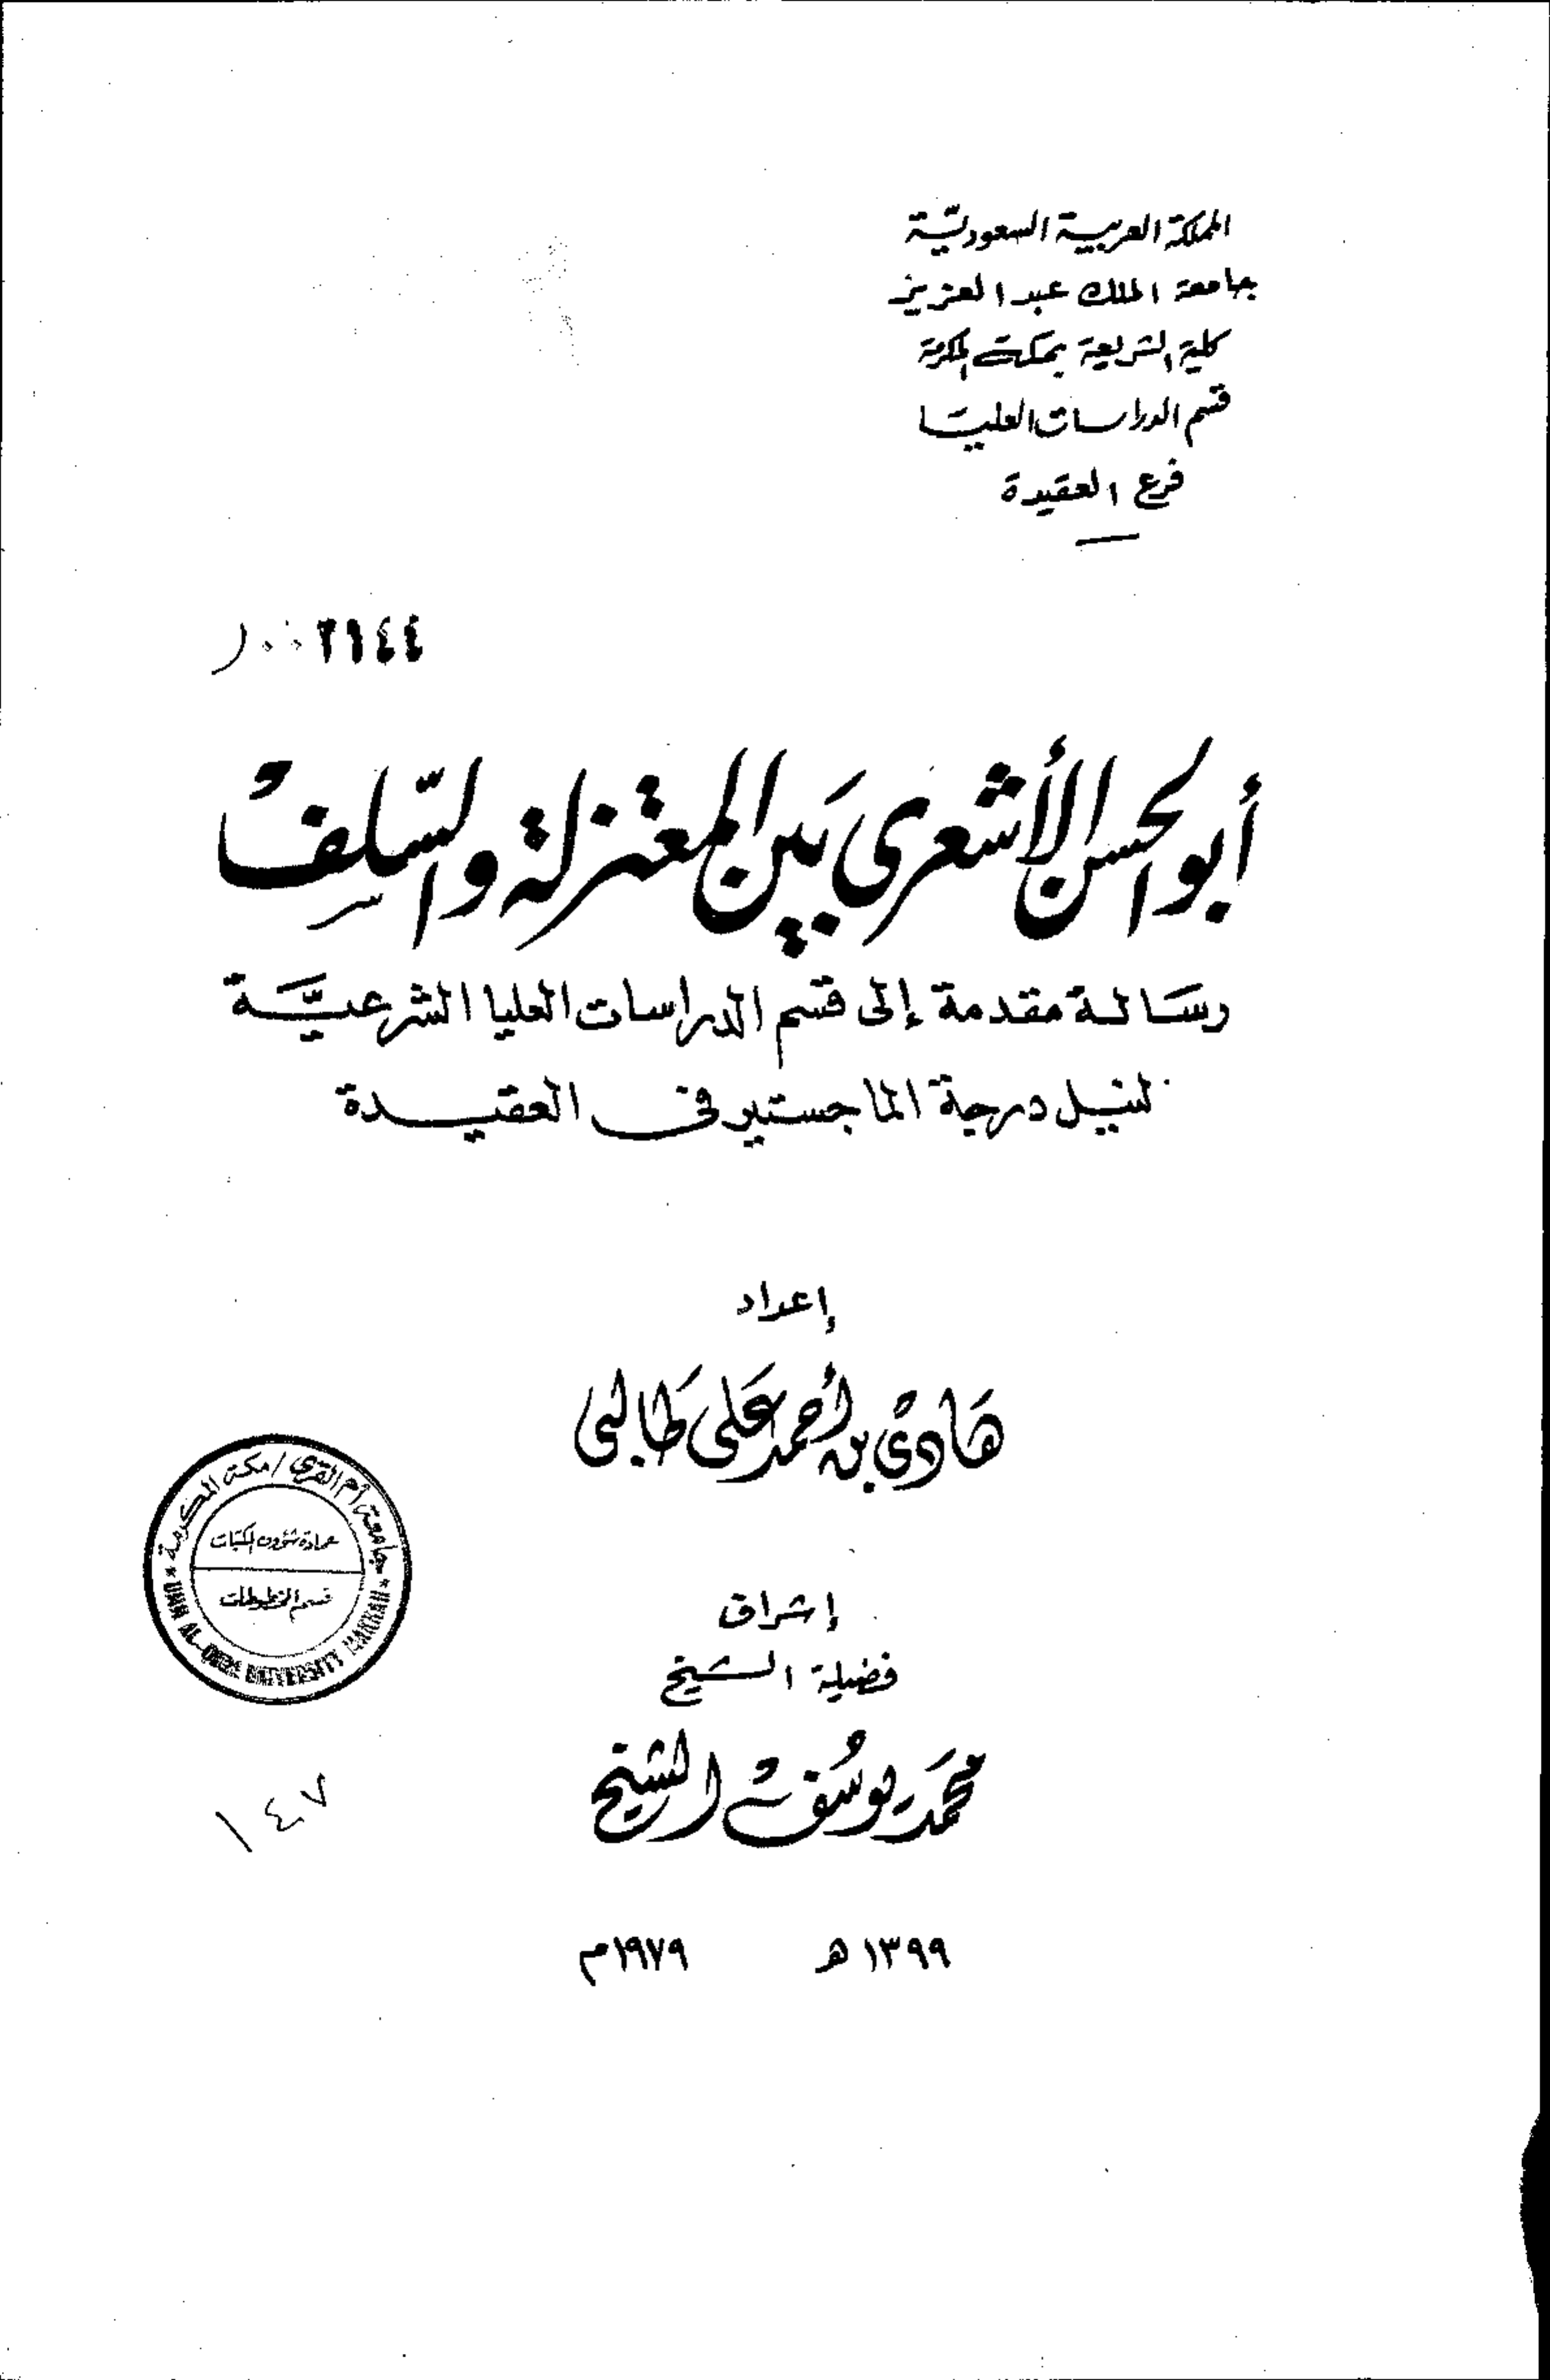 المملكة العربية السعوديّة
جامعة الملك عبد العزيز
كلية الشريعة بمكة المكرمة
قسم الدراسات العليا
فرع العقيدة
٢١٤٤
أبو الحسن الأشعري بَين المعتزلة والسّلف
رسَالة مقدمة إلى قسم الدراسات العليا الشرعيَّة
لنيل درجة الماجستير في العقيدة
إعداد
هَادي بن أحمد عَلى طَالبى
جامعة أم القرى / مكة المكرمة
عمادة شؤون المكتبات
قسم المخطوطات
UMM AL-QURA UNIVERSITY MAKKAH
إشراق
فضيلة الشيخ
محمَّد يوسُف الشيخ
١٤٧
١٣٩٩ هـ ١٩٧٩م